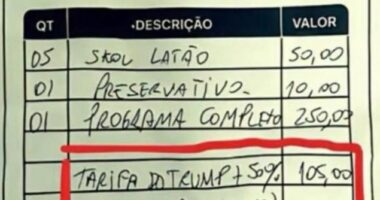 QT DESCRIÇÃO VALOR
05 SKOL LATÃO 50,00
01 PRESERVATIVO. 10,00
01 PROGRAMA COMPLETO 250,00
TARIFA DO TRUMP + 50% 105,00